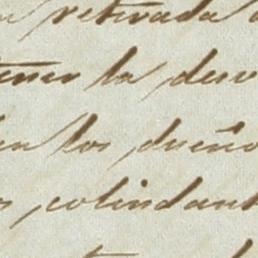 retirada
tener la desv
en los dueño
s, colindant